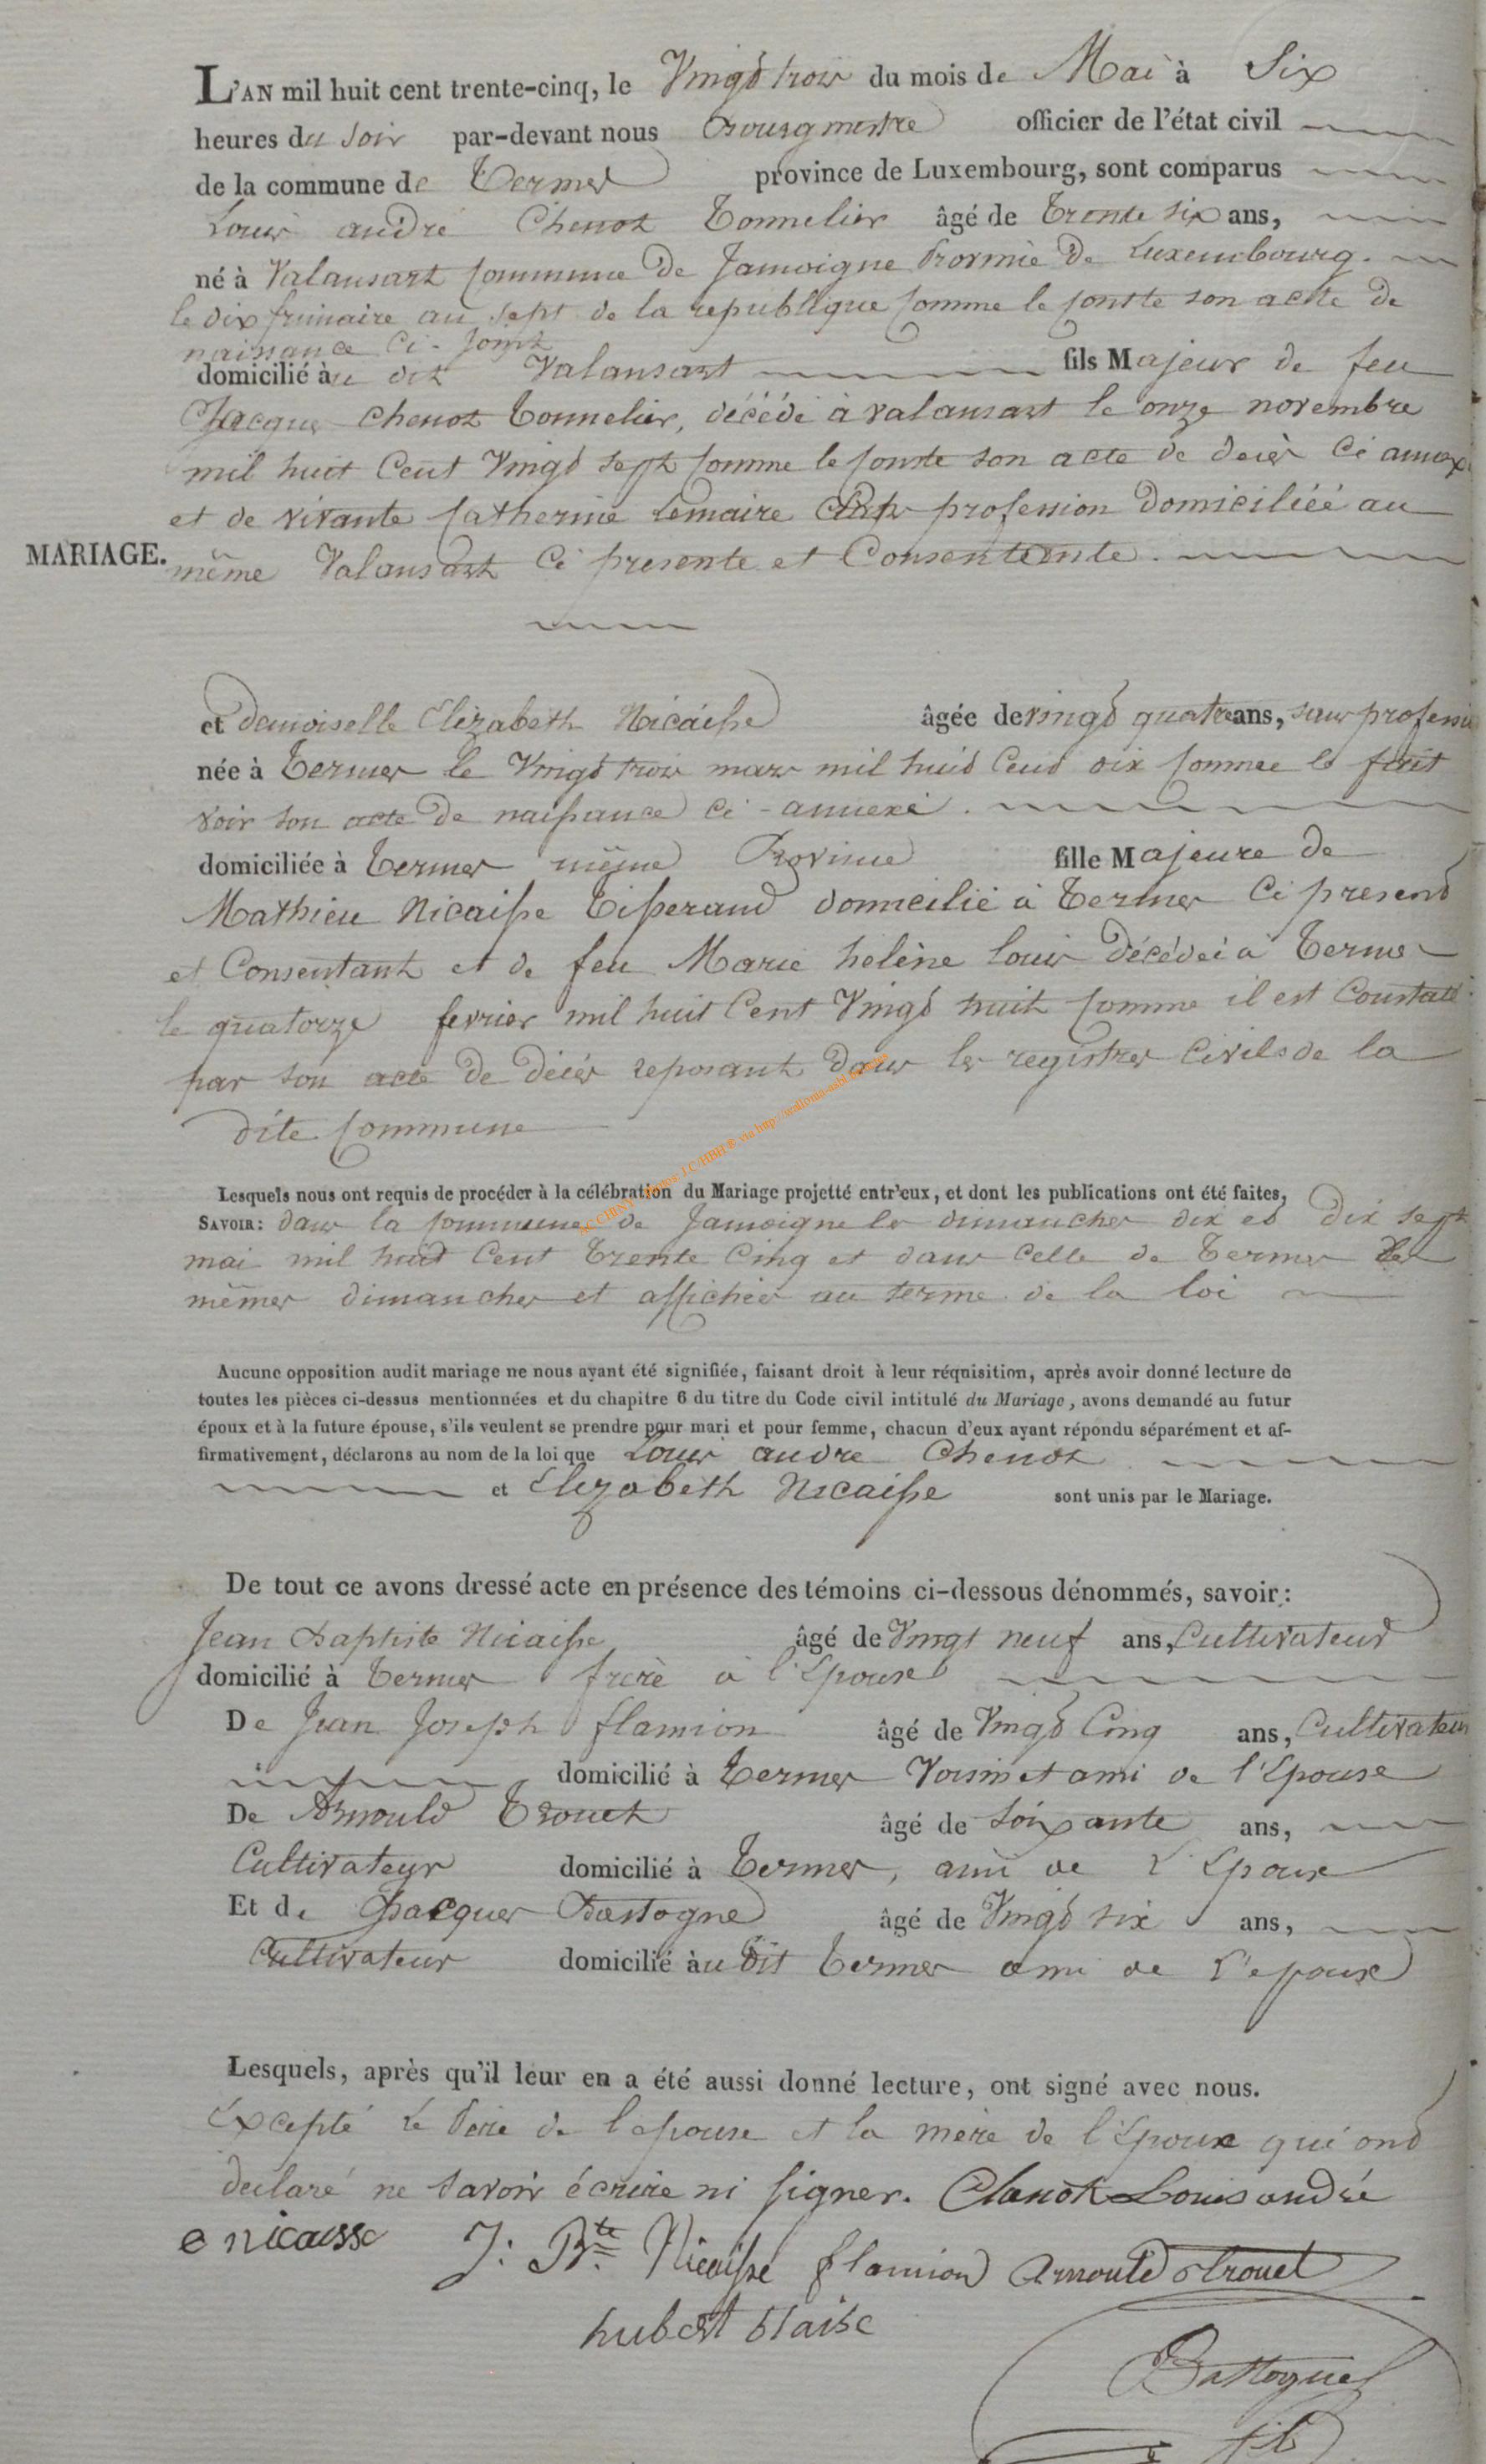 L'AN mil huit cent trente-cinq, le Vingt trois du mois de Mai à Six
heures du soir par-devant nous Bourgmestre officier de l'état civil
de la commune de Termes province de Luxembourg, sont comparus
Louis andré Chenot Tonnelier âgé de Trente six ans,
né à Valansart Commune de Jamoigne Province de Luxembourg.
le dix frimaire an sept de la republique Comme le Conste son acte de
naissance Ci-Joint
domicilié au dit Valansart fils Majeur de feu
Jacque Chenot Tonnelier, décédé à valansart le onze novembre
mil huit Cent Vingt sept Comme le Conste son acte de decès Ci annexé
et de vivante Catherine Lemaire profession Domiciliéé au
MARIAGE.
même Valansart Ci presente et Consentente.
et demoiselle Elizabeth Nicaisse âgée de vingt quatre ans, sans profession
née à Termes le Vingt trois mars mil huit Cent dix Comme le fait
voir son acte de naissance Ci-annexé.
domiciliée à Termes même Province fille Majeure de
Mathieu Nicaisse Tisserand domicilié à Termes Ci present
et Consentant et de feu Marie helène Louis Décédéé à Termes
le quatorze fevrier mil huit Cent Vingt huit Comme il est Constaté
par son acte de décès reposant dans les registres Civils de la
dite Commune
Lesquels nous ont requis de procéder à la célébration du Mariage projetté entr'eux, et dont les publications ont été faites,
SAVOIR: dans la Commune de Jamoigne les dimanches dix et Dix sept
mai mil huit Cent Trente Cinq et dans Celle de Termes les
mêmes dimanches et affichées au terme de la loi
Aucune opposition audit mariage ne nous ayant été signifiée, faisant droit à leur réquisition, après avoir donné lecture de
toutes les pièces ci-dessus mentionnées et du chapitre 6 du titre du Code civil intitulé du Mariage, avons demandé au futur
époux et à la future épouse, s'ils veulent se prendre pour mari et pour femme, chacun d'eux ayant répondu séparément et af-
firmativement, déclarons au nom de la loi que Louis andre Chenot
et Elizabeth Nicaisse sont unis par le Mariage.
De tout ce avons dressé acte en présence des témoins ci-dessous dénommés, savoir:
Jean Baptiste Nicaisse âgé de Vingt neuf ans, Cultivateur
domicilié à Termes frere à l'Epouse
De Jean Joseph flamion âgé de Vingt Cinq ans, Cultivateur
domicilié à Termes Voisin et ami de l'Epouse
De Arnould Trouet âgé de Soixante ans,
Cultivateur domicilié à Termes, ami de l'Epoux
Et de Jacques Bastogne âgé de Vingt six ans,
Cultivateur domicilié au dit Termes ami de l'epoux
Lesquels, après qu'il leur en a été aussi donné lecture, ont signé avec nous.
Excepté Le Père de l'epouse et la mère de l'Epoux qui ont
declaré ne Savoir écrire ni Signer. Chanot Louis andré
e nicaisse J: Bte Nicaisse flamion Arnould trouet
hubert blaise
Bastogne